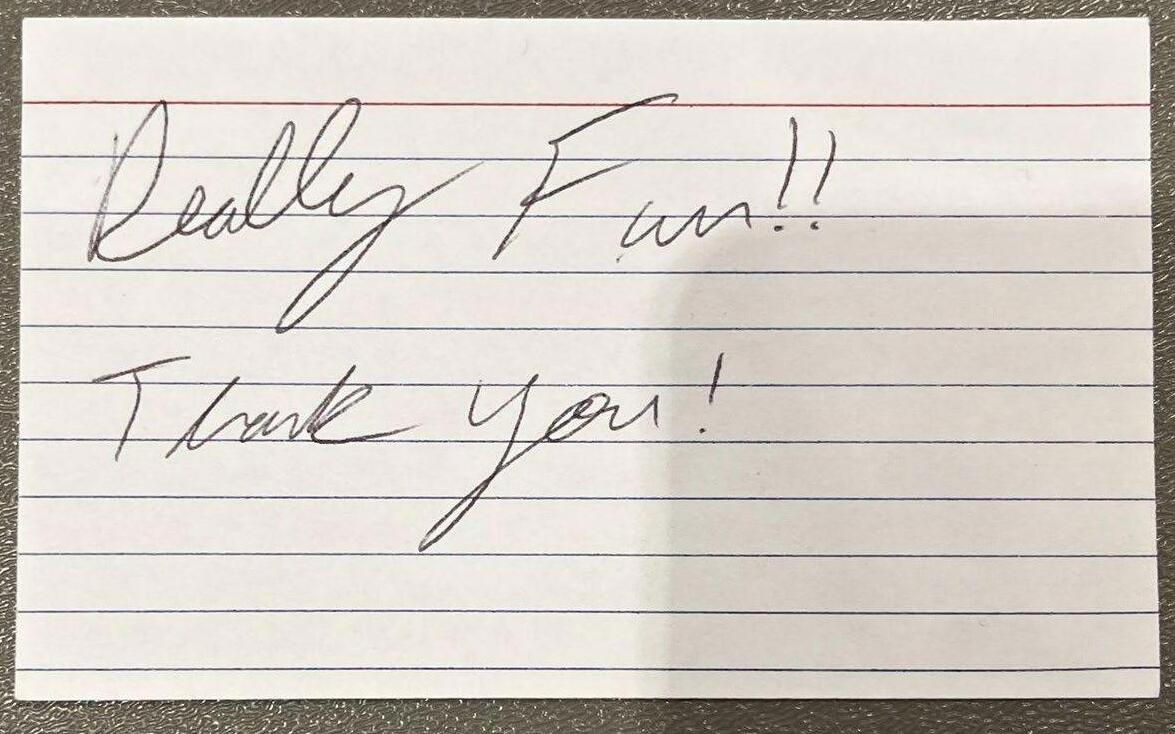 Really Fun!!
Thank you!